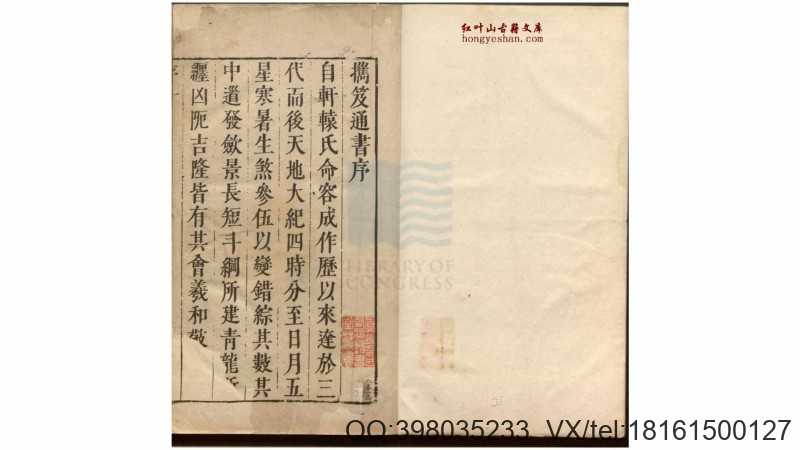 红叶山古籍文库
hongyeshan.com
攜笈通書序
自軒轅氏命容成作歷以來逹於三
代而後天地大紀四時分至日月五
星寒暑生煞參伍以變錯綜其數其
中道發斂景長短斗綱所建青龍所
躔凶阨吉隆皆有其會羲和敬
LIBRARY OF
CONGRESS
QQ:398035233 VX/tel:18161500127